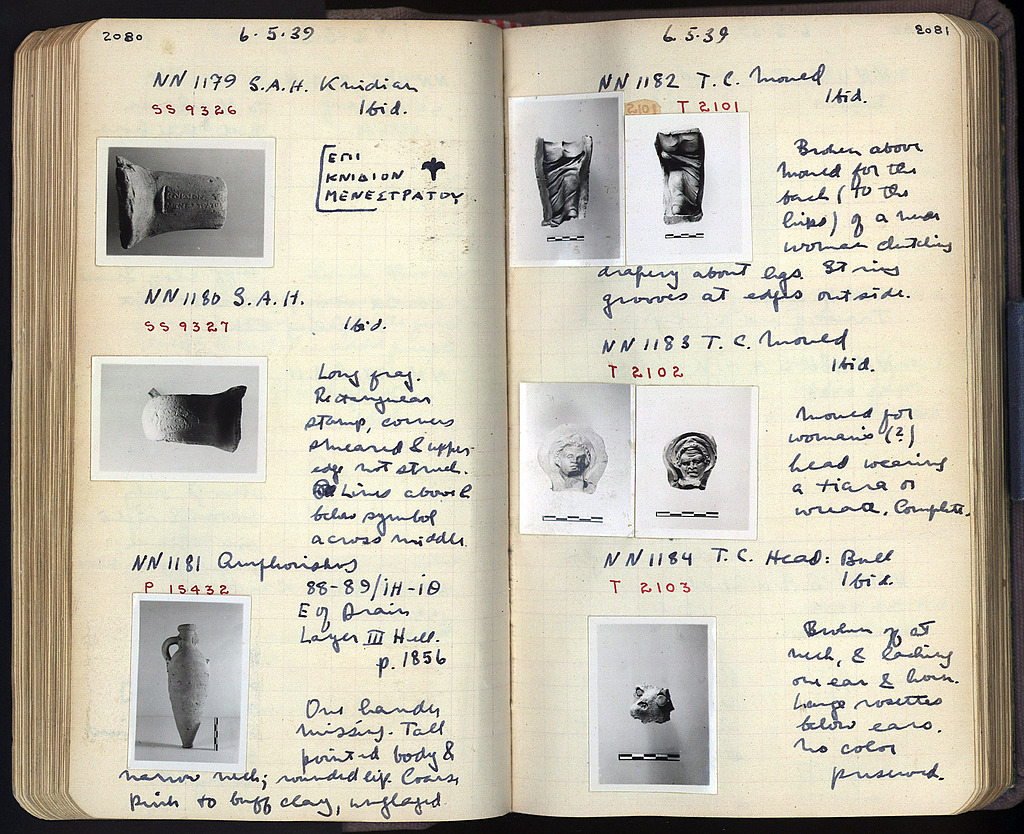 2080
6·5·39
NN 1179 S.A.H. Knidian
SS 9326
Ibid.
ΕΠΙ
ΚΝΙΔΙΟΝ
ΜΕΝΕΣΤΡΑΤΟΥ
NN 1180 S.A.H.
SS 9327
Ibid.
Long frag.
Rectangular
stamp, corners
smeared & upper
edge not struck.
Lines above &
below symbol
across middle.
NN 1181 Amphoriskos
P 15432
88-89/ΙΗ-ΙΘ
E of Drain
Layer III Hell.
p. 1856
One handle
missing. Tall
pointed body &
narrow neck; rounded lip. Coarse
pink to buff clay, unglazed
2081
6·5·39
NN 1182 T.C. Mould
T 2101
Ibid.
Broken above
Mould for the
back (to the
hips) of a nude
woman clutching
drapery about legs. String
grooves at edges outside.
NN 1183 T.C. Mould
T 2102
Ibid.
Mould for
woman's (?)
head wearing
a tiara or
wreath. Complete.
NN 1184 T.C. Head: Bull
T 2103
Ibid.
Broken off at
neck, & lacking
one ear & horn.
Large rosettes
below ears.
No color
preserved.